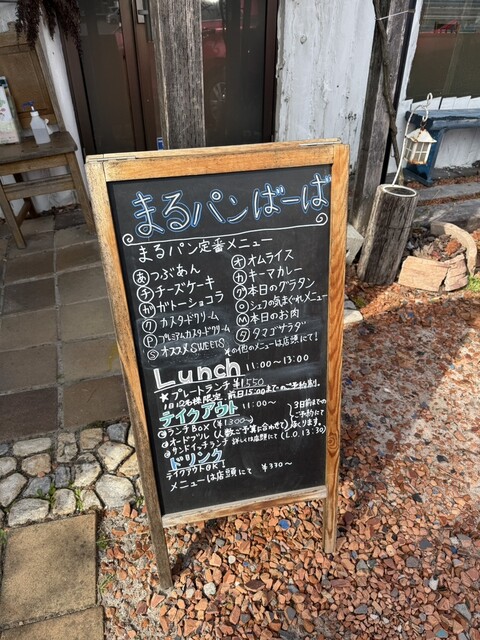 まるパンばーば
まるパン定番メニュー
あ つぶあん
チ チーズケーキ
ガ ガトーショコラ
ク カスタードクリーム
P プレミアムカスタードクリーム
S オススメSWEETS
オ オムライス
カ キーマカレー
グ 本日のグラタン
シェフの気まぐれメニュー
M 本日のお肉
タ タマゴサラダ
*その他のメニューは店頭にて!
Lunch 11:00〜13:00
★プレートランチ ¥1,550
1日12名様限定 前日15:00までのご予約制。
テイクアウト 11:00〜
ランチBOX (¥1300〜)
オードブル (人数、ご予算に合わせて)
サンドイッチランチ 詳しくは店頭にて (L.O 13:30)
3日前までの
ご予約にて
承ります。
ドリンク
テイクアウトOK! ¥330〜
メニューは店頭にて